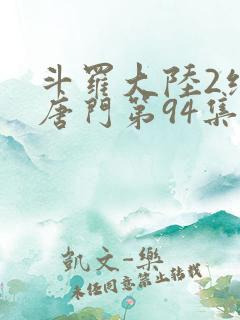 斗羅大陸2
唐門第94集
凱文-樂
未經同意禁止轉載